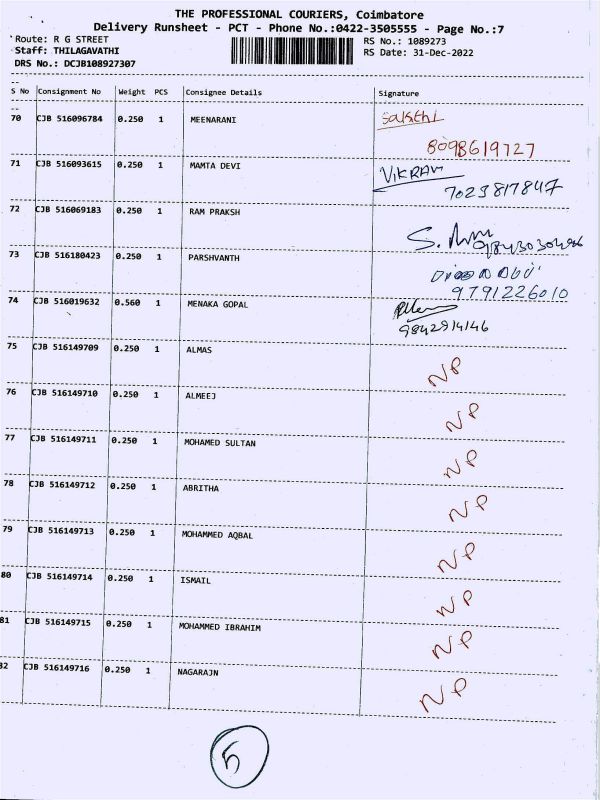 THE PROFESSIONAL COURIERS, Coimbatore
Delivery Runsheet - PCT - Phone No.:0422-3505555 - Page No.:7
Route: R G STREET
Staff: THILAGAVATHI
DRS No.: DCJB108927307
RS No.: 1089273
RS Date: 31-Dec-2022
S No Consignment No Weight PCS Consignee Details Signature
70 CJB 516096784 0.250 1 MEENARANI Sakthi
8098619727
71 CJB 516093615 0.250 1 MAMTA DEVI VIKRAM
7023817847
72 CJB 516069183 0.250 1 RAM PRAKSH
73 CJB 516180423 0.250 1 PARSHVANTH
9791226010
74 CJB 516019632 0.560 1 MENAKA GOPAL
9842914146
75 CJB 516149709 0.250 1 ALMAS NP
76 CJB 516149710 0.250 1 ALMEEJ NP
77 CJB 516149711 0.250 1 MOHAMED SULTAN NP
78 CJB 516149712 0.250 1 ABRITHA NP
79 CJB 516149713 0.250 1 MOHAMMED AQBAL NP
80 CJB 516149714 0.250 1 ISMAIL NP
81 CJB 516149715 0.250 1 MOHAMMED IBRAHIM NP
82 CJB 516149716 0.250 1 NAGARAJN NP
5